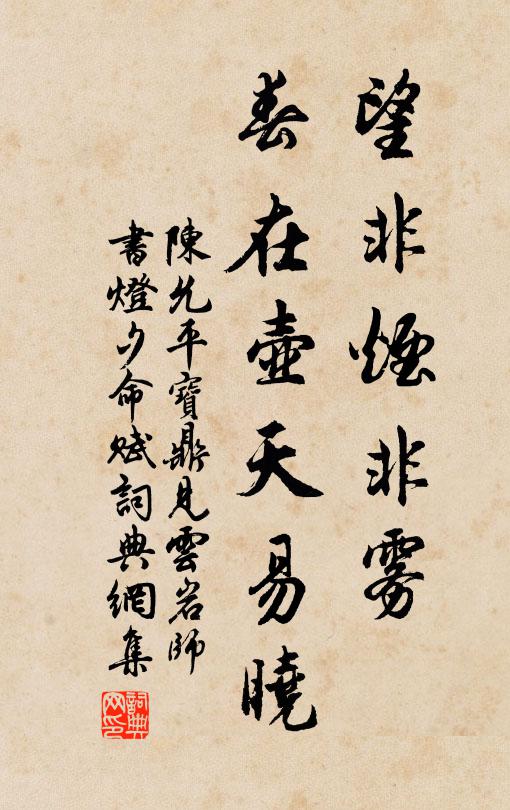 望非煙非雾
春在壷天易曉
陳允平寶鼎見雲岩師
書燈夕命賦詞典網集
詞典
网印